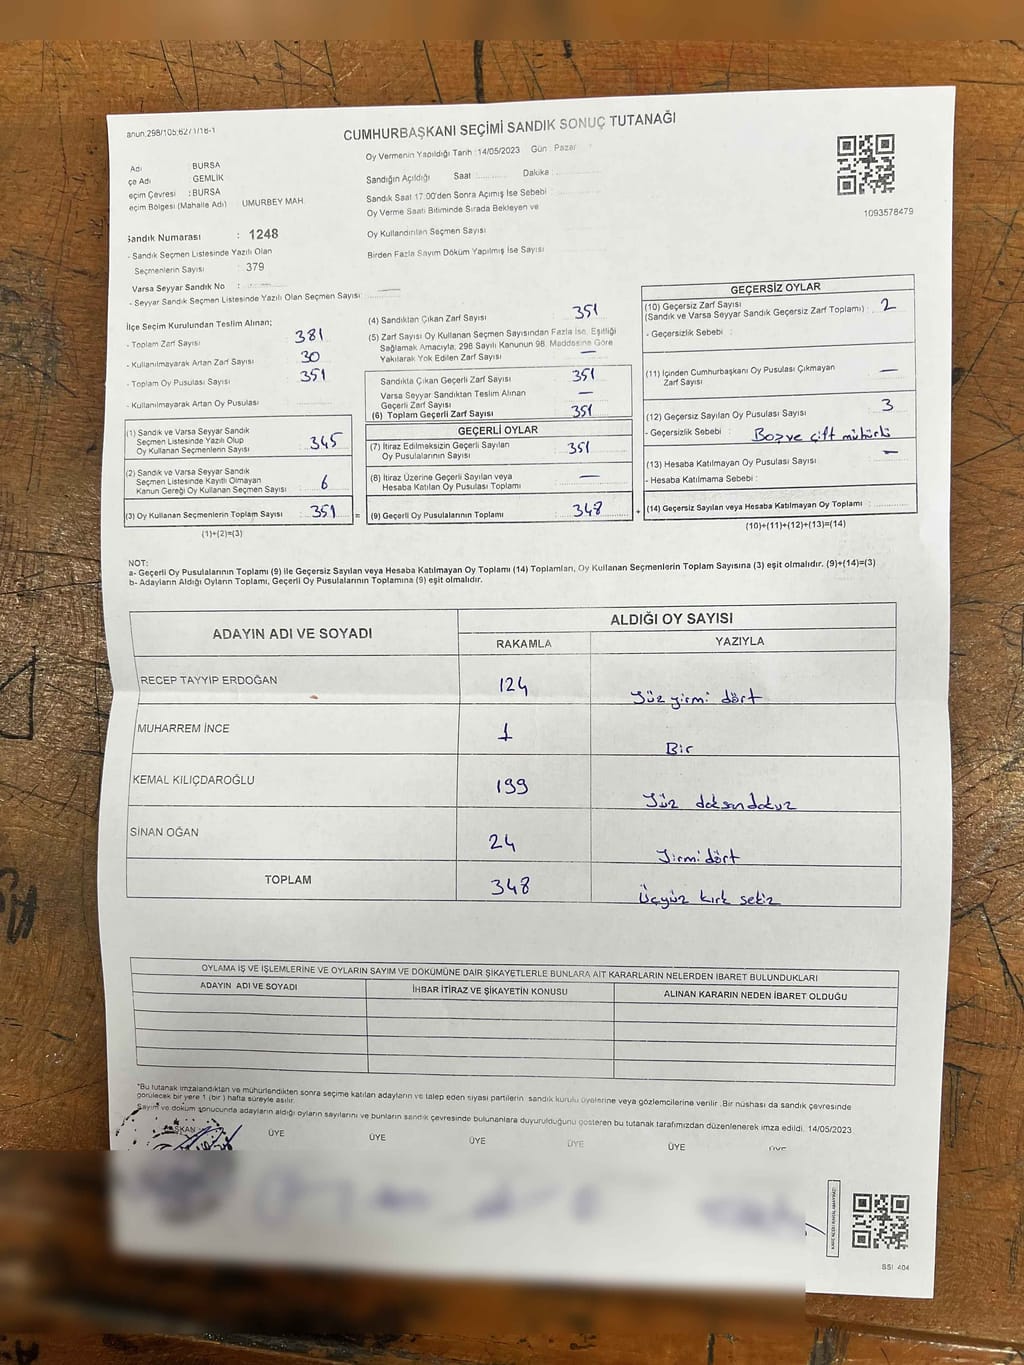 anun,298/105,627/1/16-1
CUMHURBAŞKANI SEÇİMİ SANDIK SONUÇ TUTANAĞI
Oy Vermenin Yapıldığı Tarih :14/05/2023 Gün : Pazar
Adı : BURSA
çe Adı : GEMLİK
eçim Çevresi : BURSA
eçim Bölgesi (Mahalle Adı) UMURBEY MAH.
Sandığın Açıldığı Saat :.......... Dakika :..............
Sandık Saat 17:00'den Sonra Açımış İse Sebebi
Oy Verme Saati Bitiminde Sırada Bekleyen ve
Oy Kullandırılan Seçmen Sayısı
Birden Fazla Sayım Döküm Yapılmış İse Sayısı
1093578479
Sandık Numarası : 1248
- Sandık Seçmen Listesinde Yazılı Olan
Seçmenlerin Sayısı : 379
Varsa Seyyar Sandık No :
- Seyyar Sandık Seçmen Listesinde Yazılı Olan Seçmen Sayısı :
İlçe Seçim Kurulundan Teslim Alınan;
- Toplam Zarf Sayısı : 381
- Kullanılmayarak Artan Zarf Sayısı : 30
- Toplam Oy Pusulası Sayısı : 351
- Kullanılmayarak Artan Oy Pusulası :
(1) Sandık ve Varsa Seyyar Sandık
Seçmen Listesinde Yazılı Olup
Oy Kullanan Seçmenlerin Sayısı : 345
(2) Sandık ve Varsa Seyyar Sandık
Seçmen Listesinde Kayıtlı Olmayan
Kanun Gereği Oy Kullanan Seçmen Sayısı : 6
(3) Oy Kullanan Seçmenlerin Toplam Sayısı : 351 =
(1)+(2)=(3)
(4) Sandıktan Çıkan Zarf Sayısı : 351
(5) Zarf Sayısı Oy Kullanan Seçmen Sayısından Fazla İse, Eşitliği
Sağlamak Amacıyla, 298 Sayılı Kanunun 98. Maddesine Göre
Yakılarak Yok Edilen Zarf Sayısı : —
Sandıkta Çıkan Geçerli Zarf Sayısı : 351
Varsa Seyyar Sandıktan Teslim Alınan
Geçerli Zarf Sayısı : —
(6) Toplam Geçerli Zarf Sayısı : 351
GEÇERLİ OYLAR
(7) İtiraz Edilmeksizin Geçerli Sayılan
Oy Pusulalarının Sayısı : 351
(8) İtiraz Üzerine Geçerli Sayılan veya
Hesaba Katılan Oy Pusulası Toplamı : —
(9) Geçerli Oy Pusulalarının Toplamı : 348 +
GEÇERSİZ OYLAR
(10) Geçersiz Zarf Sayısı
(Sandık ve Varsa Seyyar Sandık Geçersiz Zarf Toplamı) : 2
- Geçersizlik Sebebi :
(11) İçinden Cumhurbaşkanı Oy Pusulası Çıkmayan
Zarf Sayısı : —
(12) Geçersiz Sayılan Oy Pusulası Sayısı : 3
- Geçersizlik Sebebi : Boş ve çift mühürlü
(13) Hesaba Katılmayan Oy Pusulası Sayısı : —
- Hesaba Katılmama Sebebi :
(14) Geçersiz Sayılan veya Hesaba Katılmayan Oy Toplamı :
(10)+(11)+(12)+(13)=(14)
NOT:
a- Geçerli Oy Pusulalarının Toplamı (9) ile Geçersiz Sayılan veya Hesaba Katılmayan Oy Toplamı (14) Toplamları, Oy Kullanan Seçmenlerin Toplam Sayısına (3) eşit olmalıdır. (9)+(14)=(3)
b- Adayların Aldığı Oyların Toplamı, Geçerli Oy Pusulalarının Toplamına (9) eşit olmalıdır.
ADAYIN ADI VE SOYADI ALDIĞI OY SAYISI
RAKAMLA YAZIYLA
RECEP TAYYİP ERDOĞAN 124 Yüz yirmi dört
MUHARREM İNCE 1 Bir
KEMAL KILIÇDAROĞLU 199 Yüz doksandokuz
SİNAN OĞAN 24 Yirmi dört
TOPLAM 348 Üçyüz kırk sekiz
OYLAMA İŞ VE İŞLEMLERİNE VE OYLARIN SAYIM VE DÖKÜMÜNE DAİR ŞİKAYETLERLE BUNLARA AİT KARARLARIN NELERDEN İBARET BULUNDUKLARI
ADAYIN ADI VE SOYADI İHBAR İTİRAZ VE ŞİKAYETİN KONUSU ALINAN KARARIN NEDEN İBARET OLDUĞU
*Bu tutanak imzalandıktan ve mühürlendikten sonra seçime katılan adayların ve talep eden siyasi partilerin sandık kurulu üyelerine veya gözlemcilerine verilir .Bir nüshası da sandık çevresinde
görülecek bir yere 1 (bir ) hafta süreyle asılır.
Sayım ve döküm sonucunda adayların aldığı oyların sayılarını ve bunların sandık çevresinde bulunanlara duyurulduğunu gösteren bu tutanak tarafımızdan düzenlenerek imza edildi. 14/05/2023
BAŞKAN ÜYE ÜYE ÜYE ÜYE ÜYE ÜYE
SSİ 404